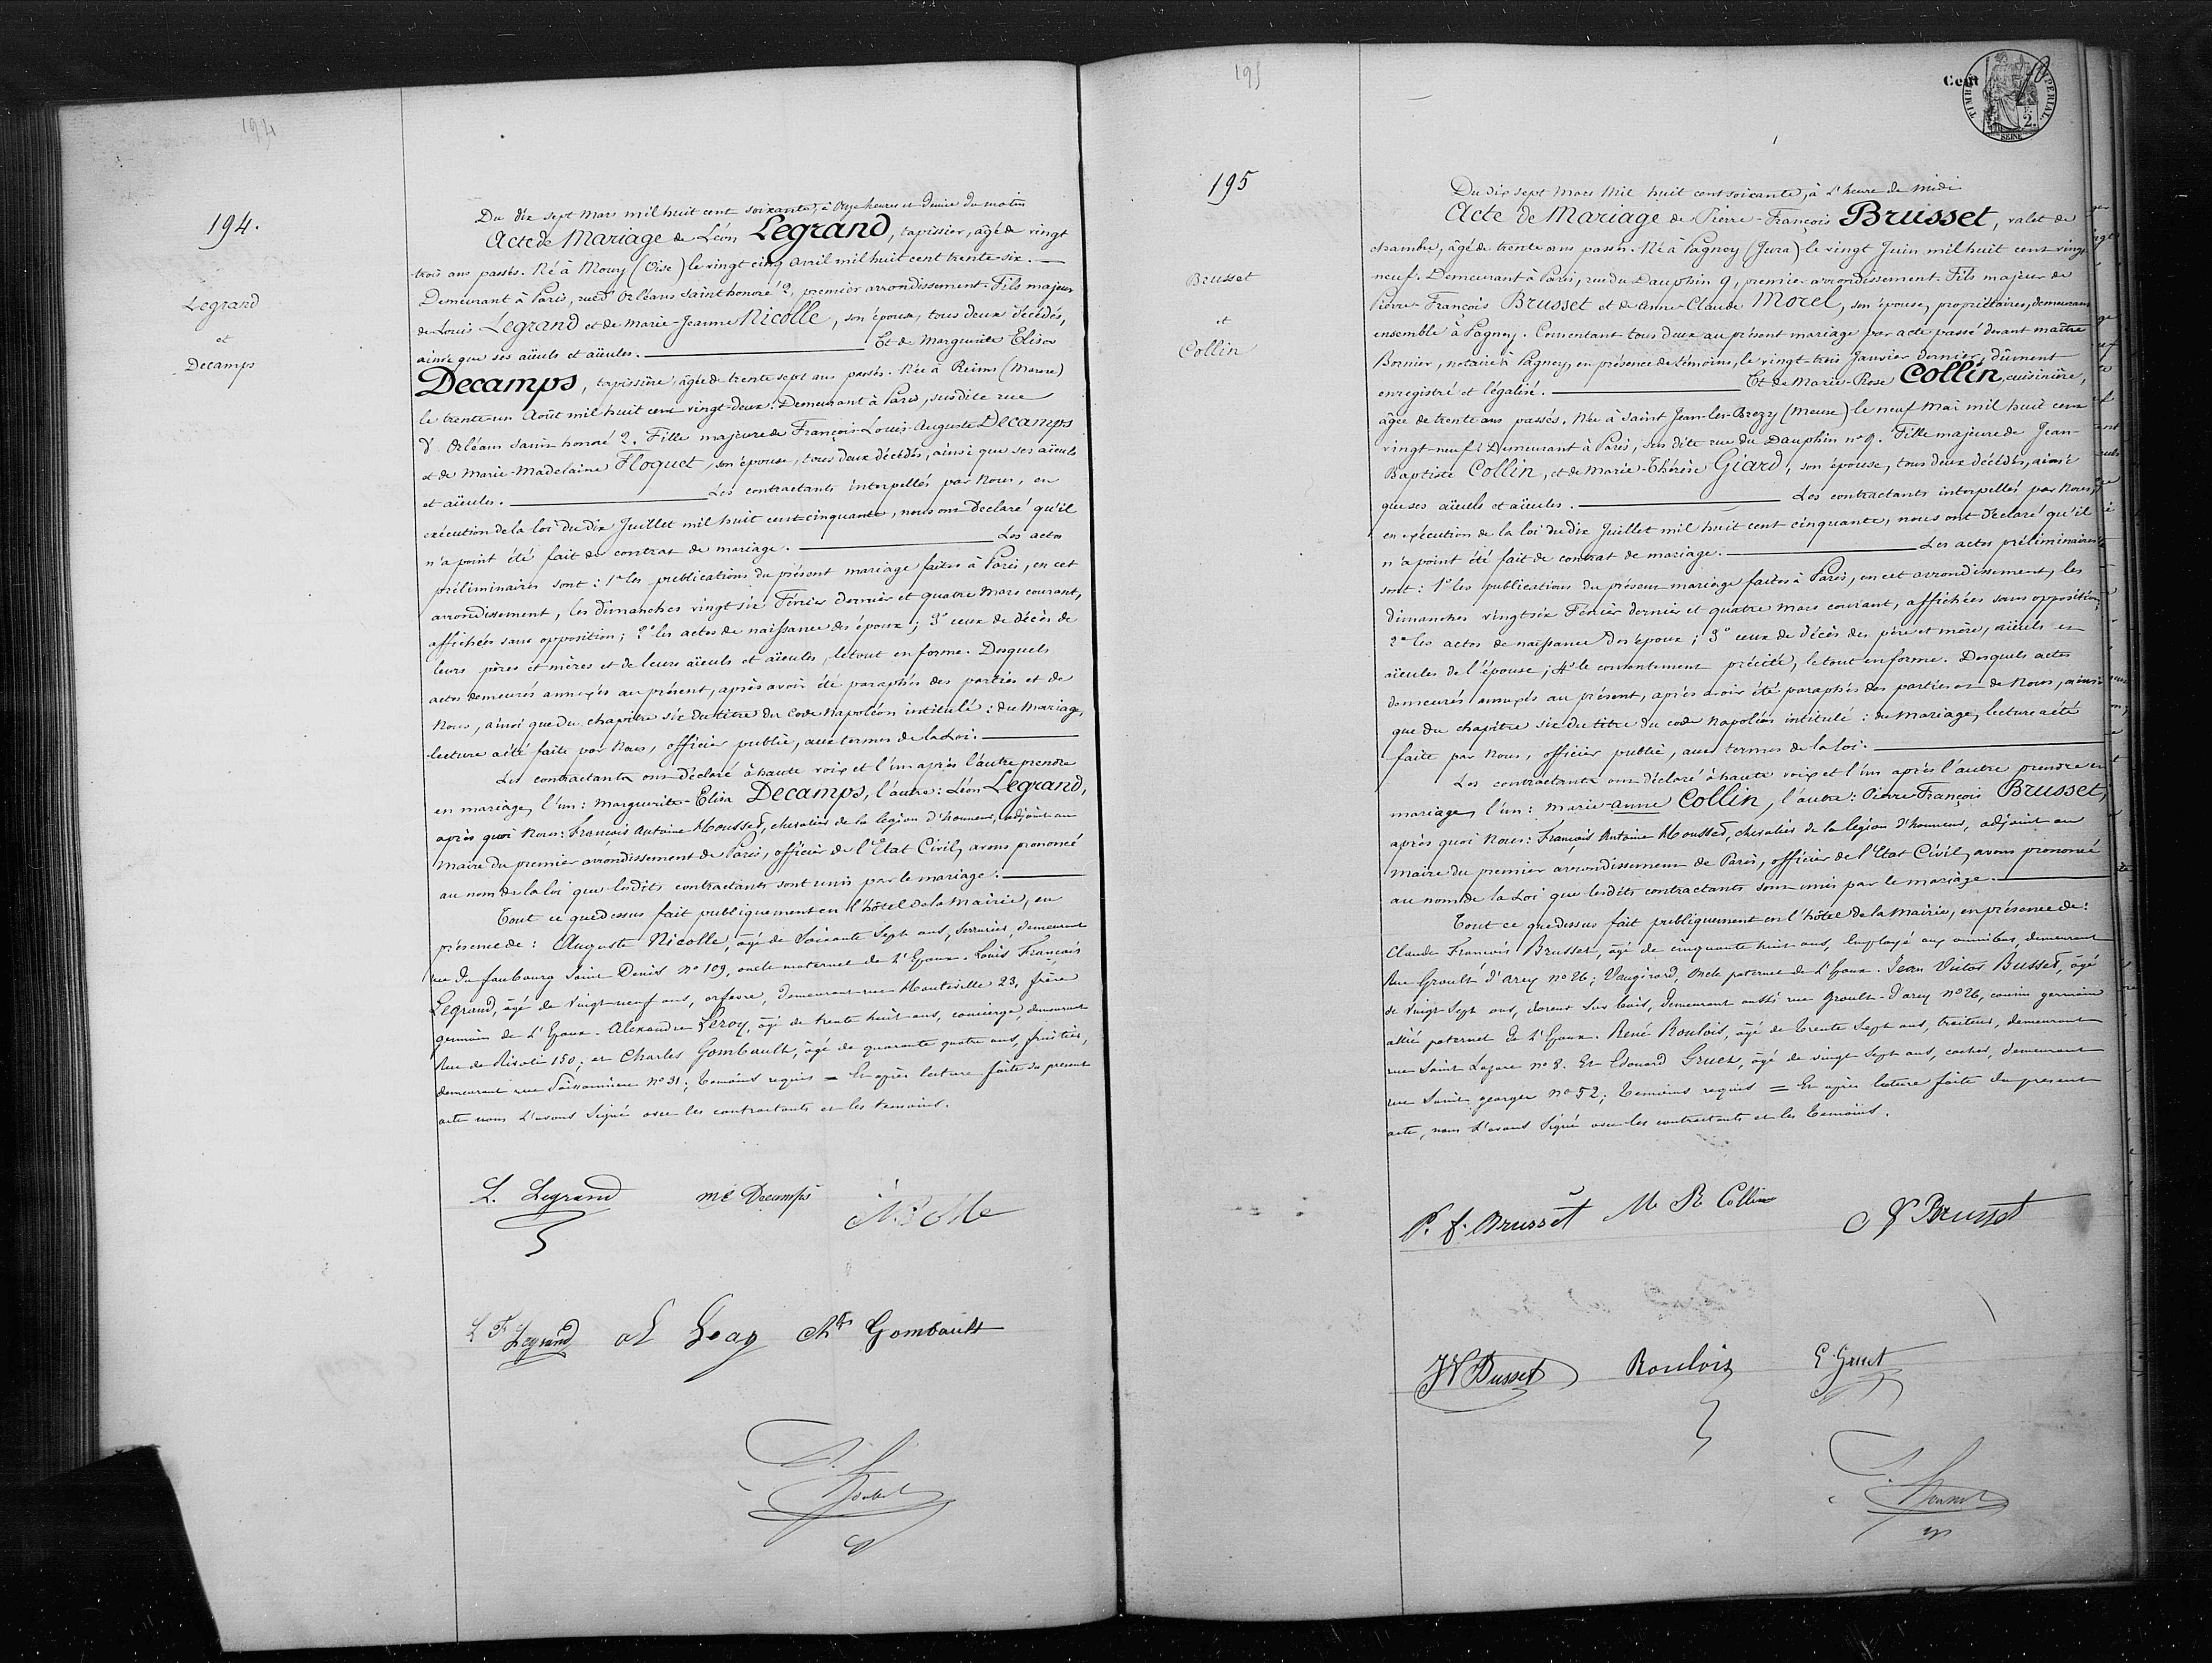 194
194.
Legrand
et
Decamps
Du dix sept Mars mil huit cent soixante, à Onze heures et demie du matin
Acte de Mariage de Léon Legrand, tapissier, âgé de vingt
trois ans passés. Né à Mouy (Oise) le vingt cinq avril mil huit cent trente-six. —
Demeurant à Paris, rue d'Orléans Saint honoré 2, premier arrondissement. Fils majeur
de Louis Legrand et de Marie-Jeanne Nicolle, son épouse, tous deux décédés,
ainsi que ses aïeuls et aïeules. — Et de Marguerite Elisa
Decamps, tapissière, âgée de trente sept ans passés. Née à Reims (Marne)
le trente-un Août mil huit cent vingt-deux. Demeurant à Paris, susdite rue
d'Orléans Saint honoré 2. Fille majeure de François-Louis-Auguste Decamps
et de Marie-Madelaine Floquet, son épouse, tous deux décédés, ainsi que ses aïeuls
et aïeules. — Les contractants interpellés par Nous, en
exécution de la loi du dix Juillet mil huit cent cinquante, nous ont déclaré qu'il
n'a point été fait de contrat de mariage. — Les actes
préliminaires sont : 1º les publications du présent mariage faites à Paris, en cet
arrondissement, les dimanches vingt six Février dernier et quatre Mars courant,
affichées sans opposition; 2º les actes de naissance des époux; 3º ceux de décès de
leurs pères et mères et de leurs aïeuls et aïeules, le tout en forme. Desquels
actes demeurés annexés au présent, après avoir été paraphés des parties et de
Nous, ainsi que du chapitre six du titre du Code Napoléon intitulé : du Mariage,
lecture a été faite par Nous, officier public, aux termes de la Loi. —
Les contractants ont déclaré à haute voix et l'un après l'autre prendre
en mariage, l'un : Marguerite-Elisa Decamps, l'autre : Léon Legrand,
après quoi Nous : François Antoine Housset, chevalier de la légion d'honneur, adjoint au
Maire du premier arrondissement de Paris, officier de l'Etat Civil, avons prononcé
au nom de la loi que lesdits contractants sont unis par le mariage. —
Tout ce que dessus fait publiquement en l'hôtel de la Mairie, en
présence de : Auguste Nicolle, âgé de Soixante Sept ans, serrurier, demeurant
rue du faubourg Saint Denis Nº 109, oncle maternel de l'Epoux. Louis François
Legrand, âgé de vingt-neuf ans, orfevre, demeurant rue Hauteville 23, frère
germain de l'Epoux. Alexandre Leroy, âgé de trente huit ans, concierge, demeurant
Rue de Rivoli 150; et Charles Gombault, âgé de quarante quatre ans, fruitier,
demeurant rue Poissonnière Nº 31; temoins requis = Et après lecture faite du present
acte nous l'avons signé avec les contractants et les temoins.
L. Legrand me Decamps Nicolle
L F Legrand al Leroy Chles Gombault
195
195
Brusset
et
Collin
Cent
TIMBRE IMPERIAL
2.
SEINE
Du dix sept Mars Mil huit cent soixante, à l'heure de midi
Acte de Mariage de Pierre-François Brusset, valet de
chambre, âgé de trente ans passés. Né à Pagnoy (Jura) le vingt Juin mil huit cent vingt
neuf. Demeurant à Paris, rue du Dauphin 9, premier arrondissement. Fils majeur de
Pierre-François Brusset et de Anne-Claude Morel, son épouse, propriétaires, demeurant
ensemble à Pagnoy. Consentant tous deux au présent mariage par acte passé devant maître
Bornier, notaire à Pagnoy, en présence de témoins, le vingt-trois Janvier dernier, dûment
enregistré et légalisé. — Et de Marie-Rose Collin, cuisinière,
âgée de trente ans passés. Née à Saint Jean-les-Buzy (Meuse) le neuf Mai mil huit cent
vingt-neuf. Demeurant à Paris, susdite rue du Dauphin nº 9. Fille majeure de Jean-
Baptiste Collin, et de Marie-Thérèse Giard, son épouse, tous deux décédés, ainsi
que ses aïeuls et aïeules. — Les contractants interpellés par Nous,
en exécution de la loi du dix Juillet mil huit cent cinquante, nous ont déclaré qu'il
n'a point été fait de contrat de mariage. — Les actes préliminaires
sont : 1º les publications du présent mariage faites à Paris, en cet arrondissement, les
dimanches vingt six Février dernier et quatre Mars courant, affichées sans opposition;
2º les actes de naissance des époux; 3º ceux de décès des père et mère, aïeuls et
aïeules de l'épouse; 4º le consentement précité, le tout en forme. Desquels actes
demeurés annexés au présent, après avoir été paraphés des parties et de Nous, ainsi
que du chapitre six du titre du code Napoléon intitulé : du Mariage, lecture a été
faite par Nous, officier public, aux termes de la Loi. —
Les contractants ont déclaré à haute voix et l'un après l'autre prendre en
mariage, l'un : Marie-Anne Collin, l'autre : Pierre-François Brusset,
après quoi Nous : François Antoine Housset, chevalier de la légion d'honneur, adjoint au
Maire du premier arrondissement de Paris, officier de l'Etat Civil, avons prononcé
au nom de la Loi que lesdits contractants sont unis par le mariage. —
Tout ce que dessus fait publiquement en l'hôtel de la Mairie, en présence de :
Claude François Brusset, âgé de cinquante huit ans, Employé aux omnibus, demeurant
Rue Groult d'arcy nº 26, Vaugirard, oncle paternel de l'Epoux. Jean Victor Busset, âgé
de vingt Sept ans, doreur sur bois, demeurant aussi rue Groult-d'arcy nº 26, cousin germain
allié paternel de l'Epoux. René Roulois, âgé de trente Sept ans, traiteur, demeurant
rue Saint Lazare nº 8. Et Edouard Gruet, âgé de vingt Sept ans, cocher, demeurant
rue Saint georges Nº 52; Temoins requis = Et après lecture faite du present
acte, nous l'avons signé avec les contractants et les temoins.
P. f. Brusset M R Collin C F Brusset
JV Busset Roulois E Gruet